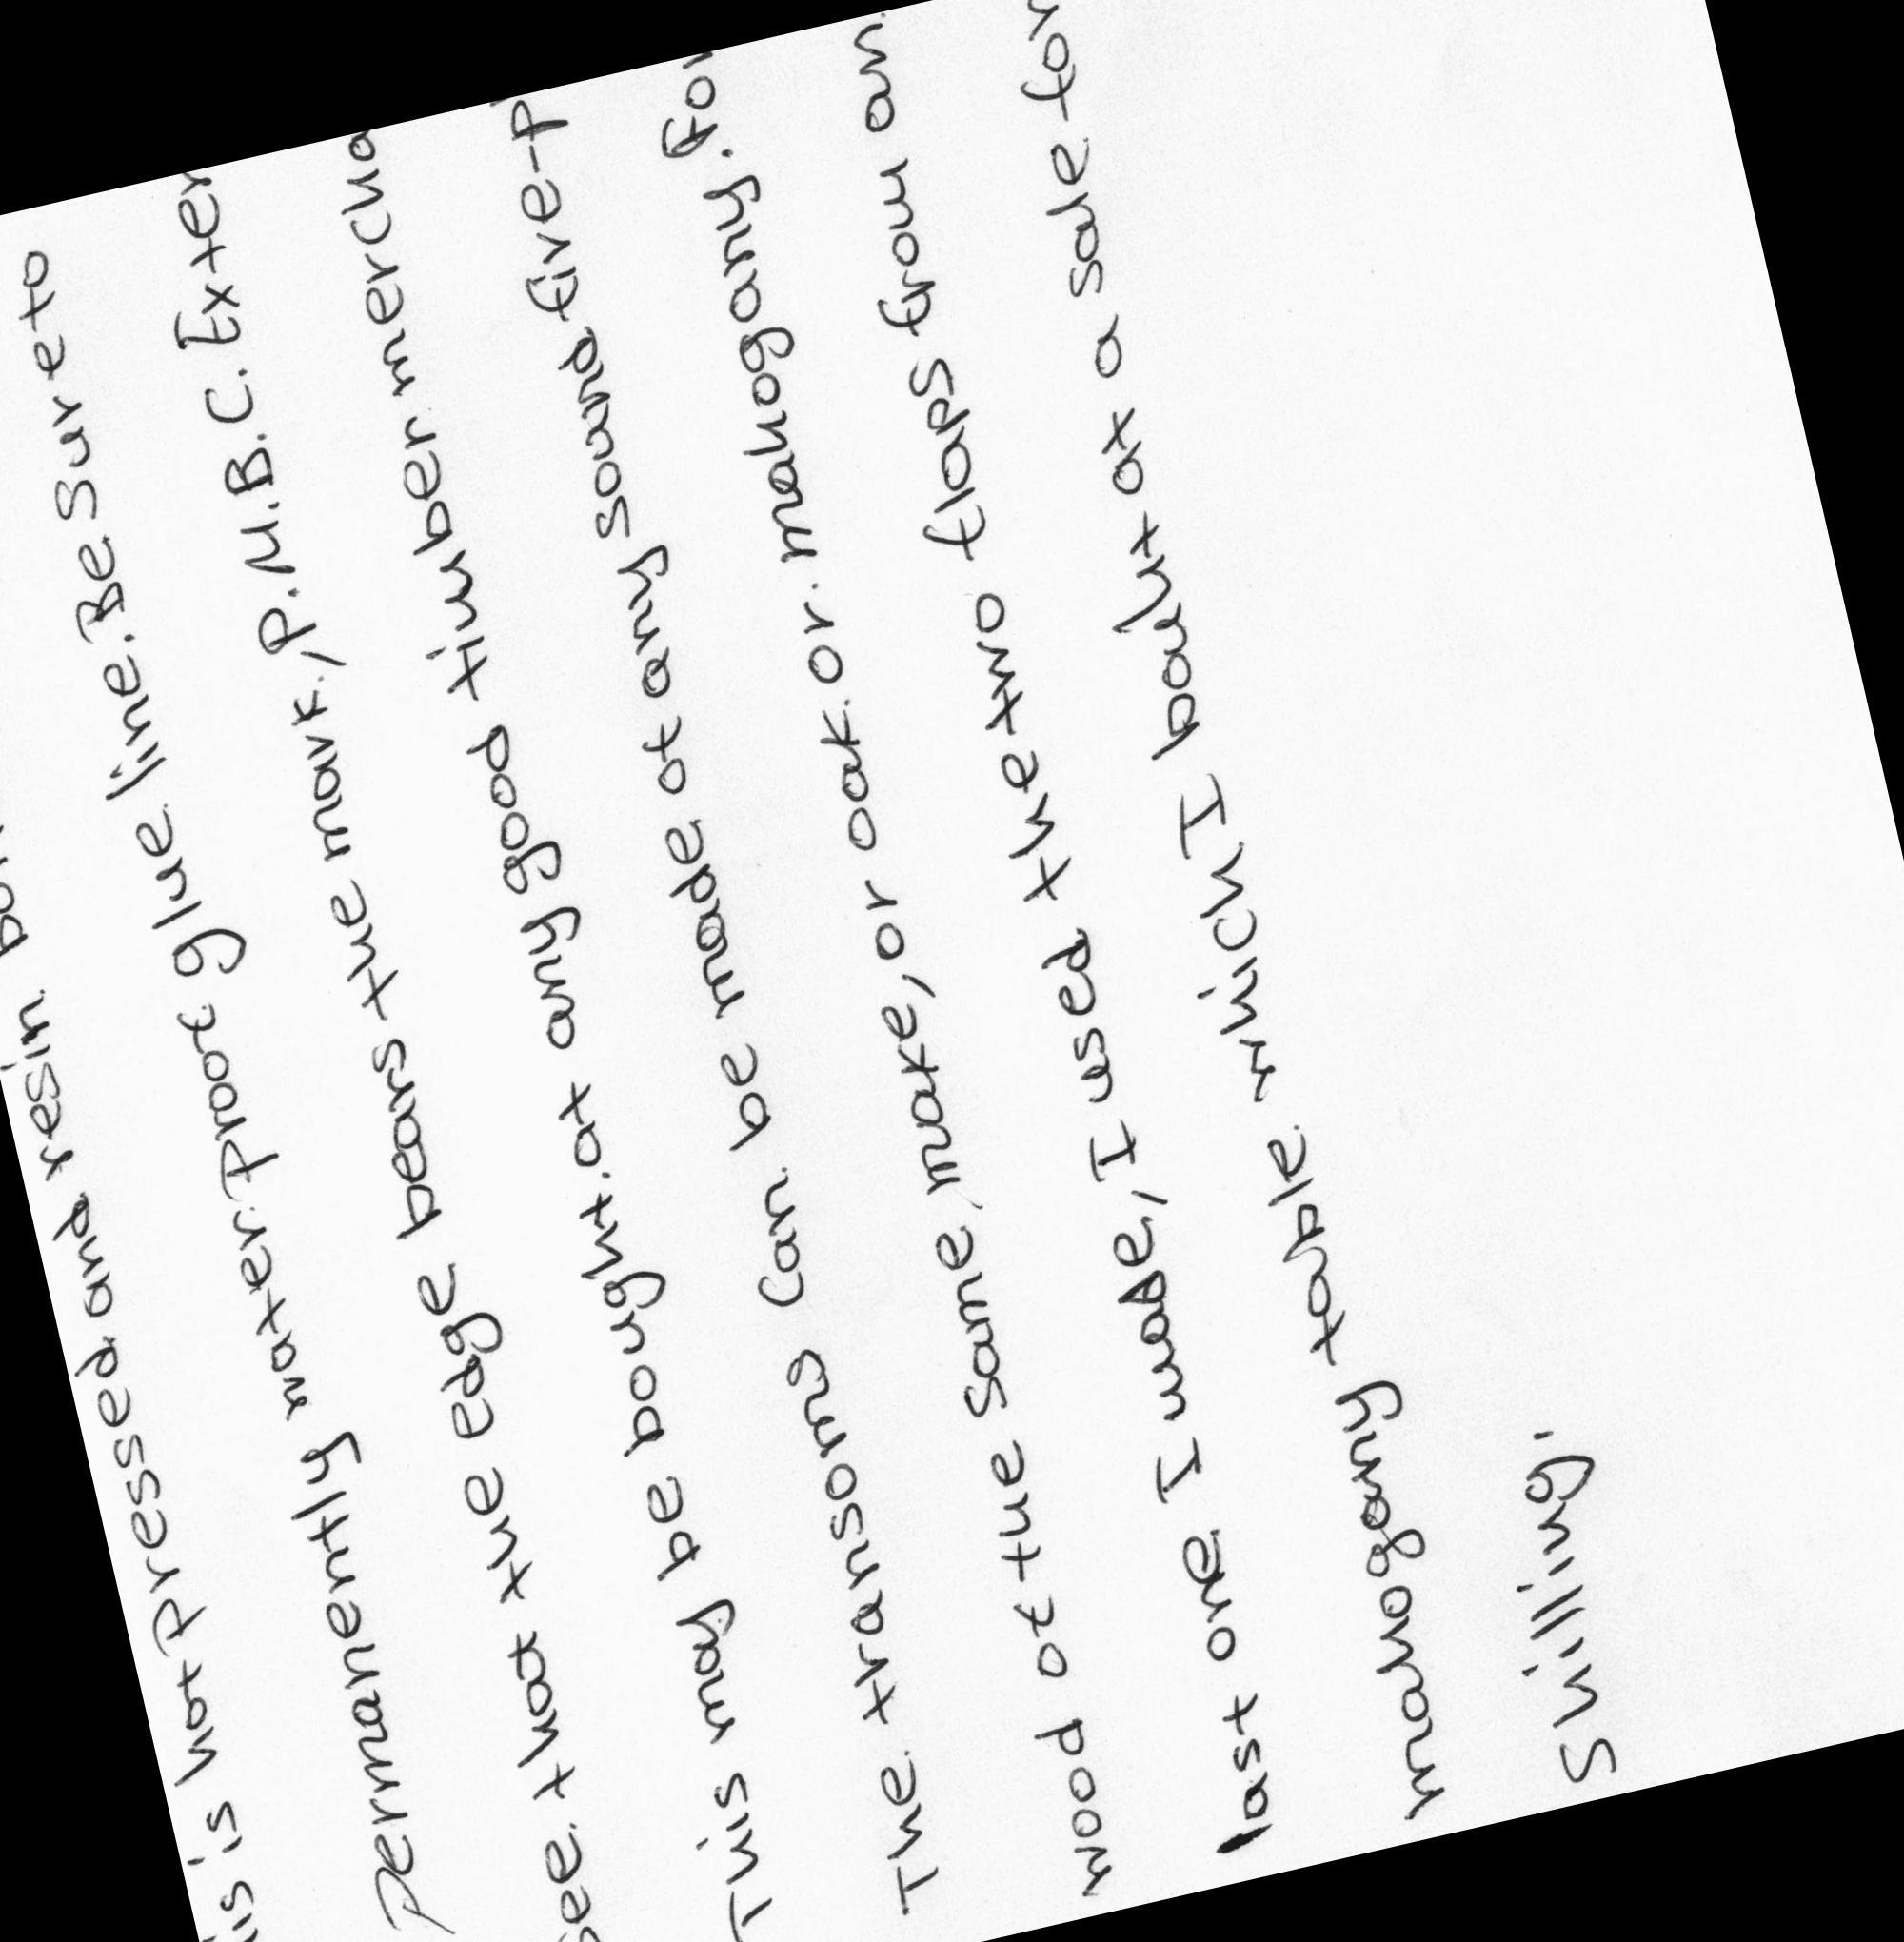 is is hot pressed and resin
permanently water proof glue line. Be sure to
see that the edge bears the mark, P.M.B.C. Exter
This may be bought at any good timber mercha
The transoms can be made of any sound five-p
wood of the same make, or oak or mahogany. For
last one I made, I used the two flaps from an
mahogany table which I bouht at a sale for
shilling.